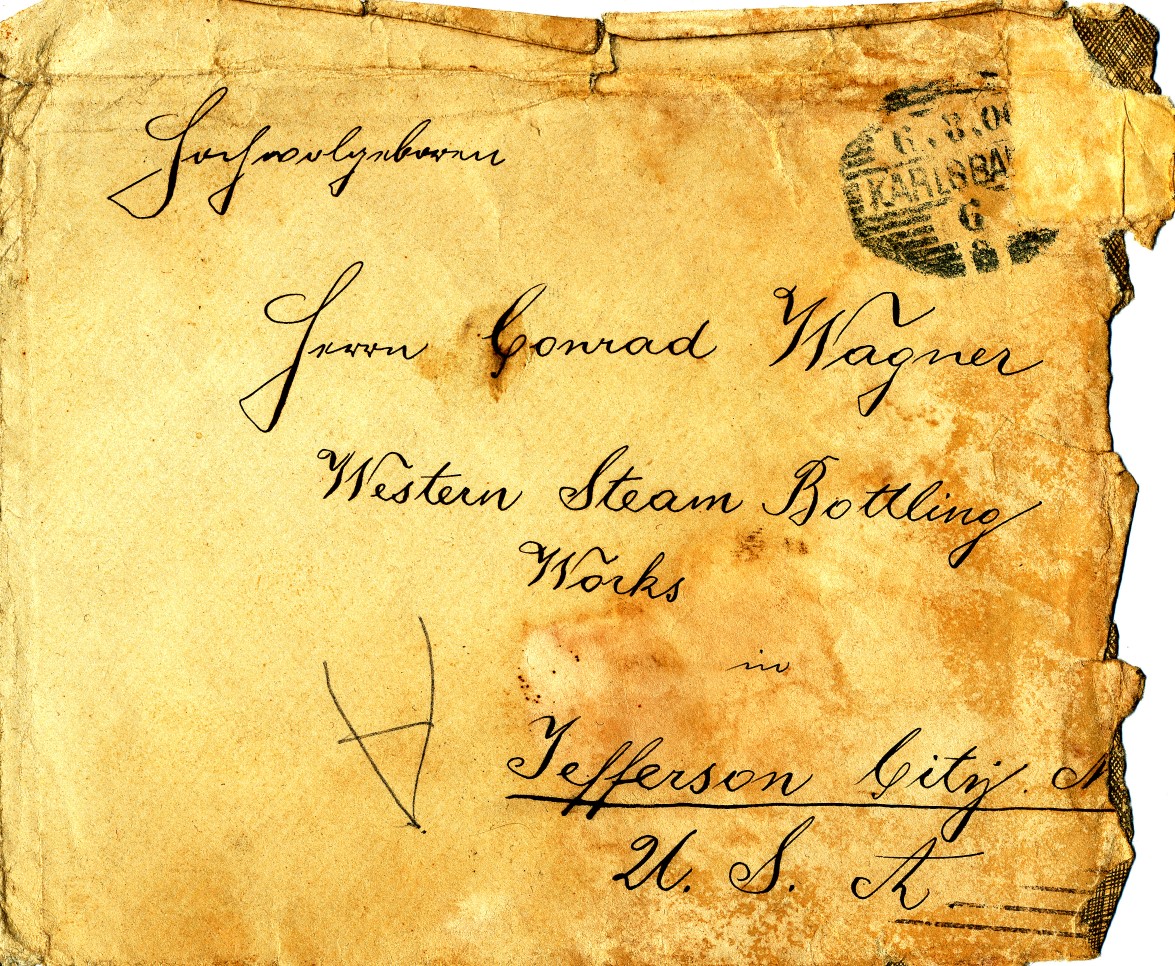 Hochwolgeboren
6.8.0
KARLSBA
6
8
Herrn Conrad Wagner
Western Steam Bottling
Works
in
Jefferson City. M
U. S. A